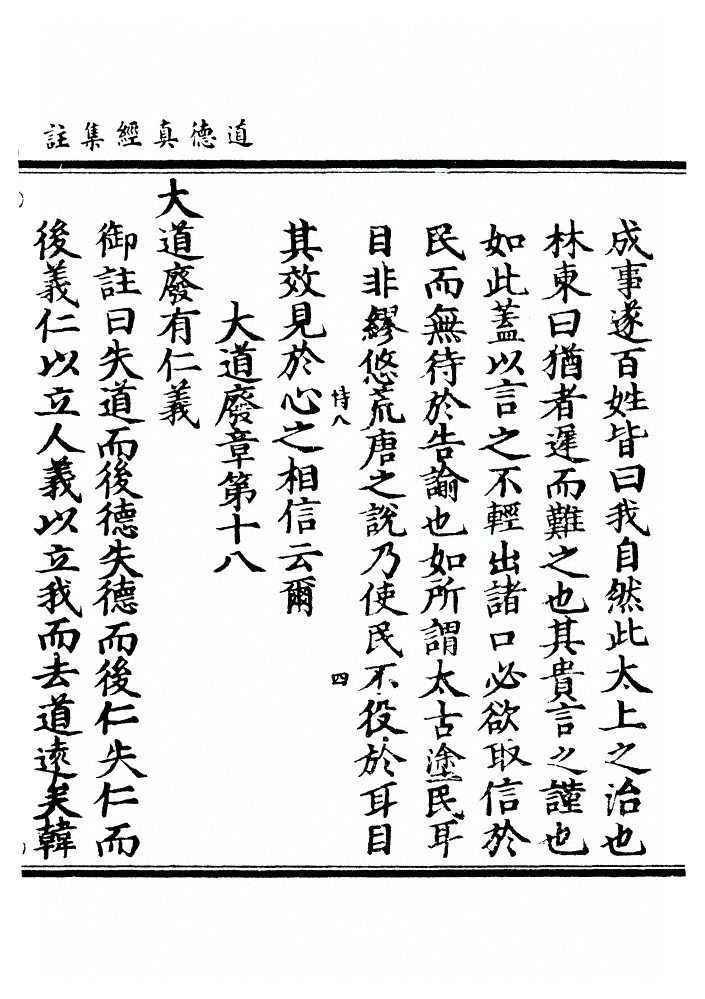 道德真經集註
成事遂百姓皆曰我自然此太上之治也
林東曰猶者遲而難之也其貴言之謹也
如此蓋以言之不輕出諸口必欲取信於
民而無待於告諭也如所謂太古塗民耳
目非繆悠荒唐之說乃使民不役於耳目
恃八
四
其效見於心之相信云爾
大道廢章第十八
大道廢有仁義
御註曰失道而後德失德而後仁失仁而
後義仁以立人義以立我而去道遠矣韓